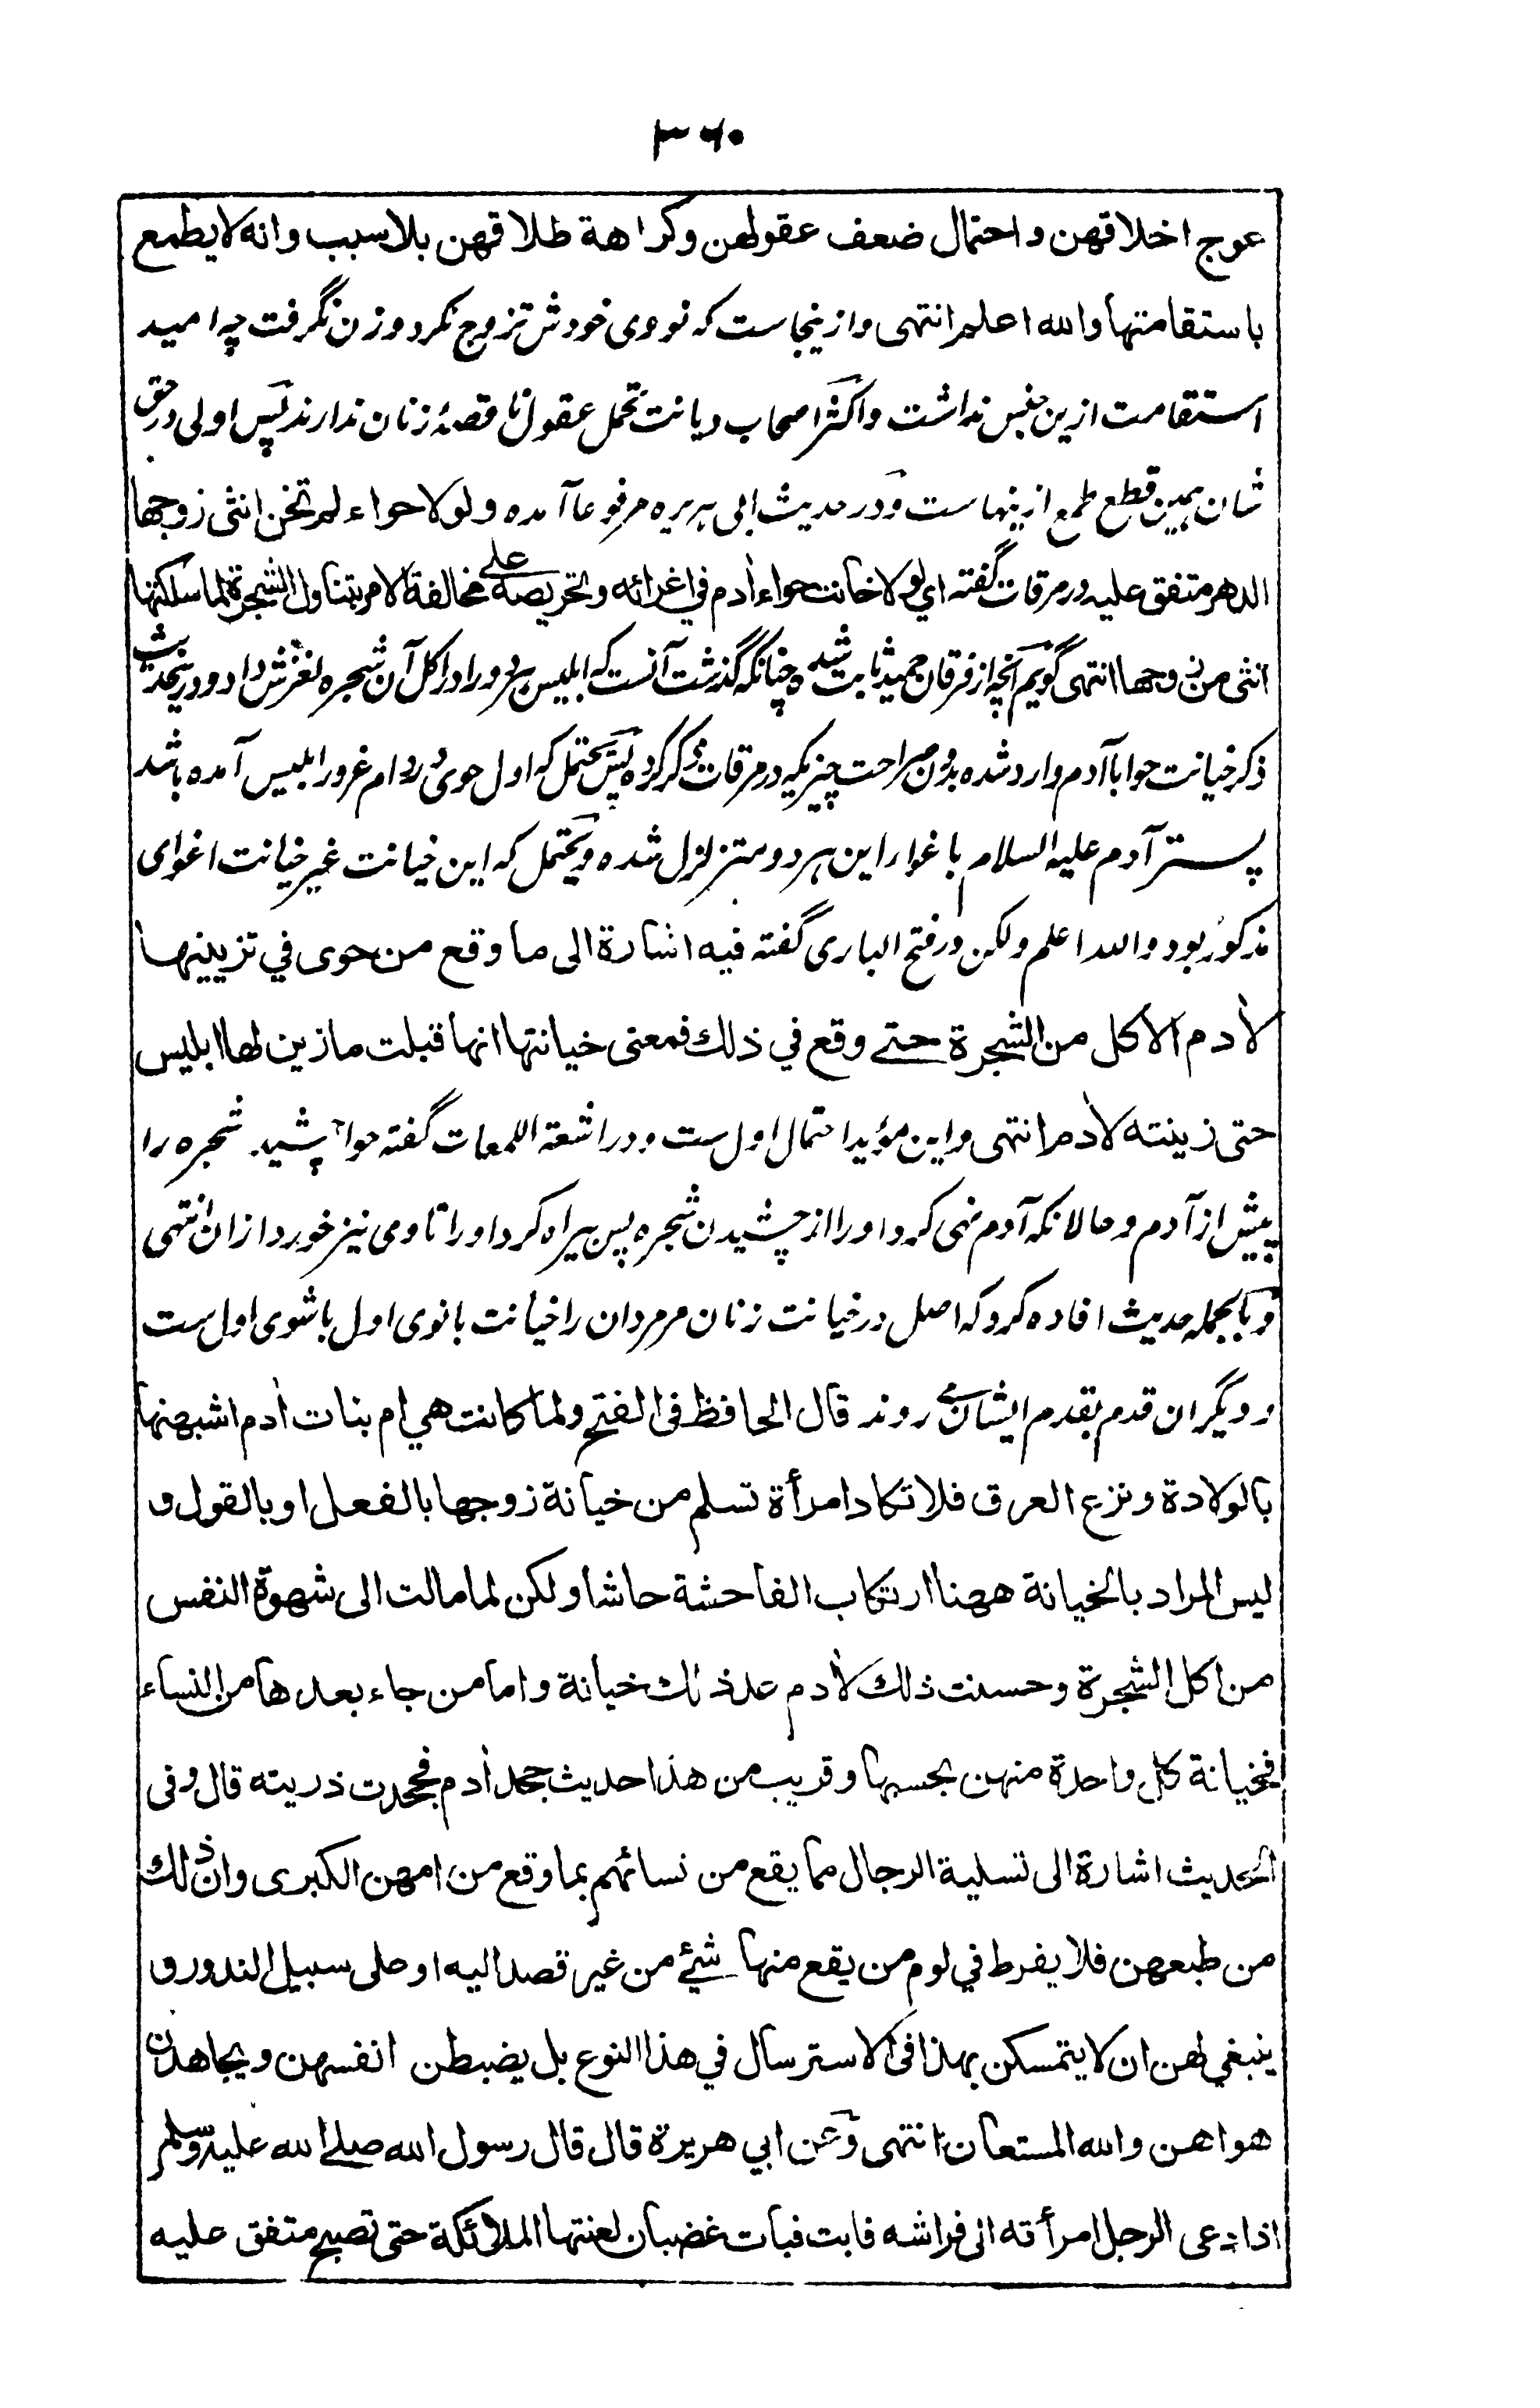 ۳۶۰
عوج اخلاقهن و احتمال ضعف عقولهن وكراهة طلاقهن بلا سبب وانه لا يطمع
باستقامتها والله اعلم انتهى وازینجاست که نووی خودش تزوج نکرد و زن نگرفت چه امید
استقامت ازین جنس نداشت و اکثر اصحاب دیانت تحمل عقول ناقصهٔ زنان ندارند پس اولی در حق
شان همین قطع طمع ازینهاست و در حدیث ابی هریره مرفوعا آمده ولولا حواء لم تخن انثى زوجها
الدهر متفق عليه در مرقات گفته اي لولا خانت حواء اٰدم في اغرائه وتحريصه على مخالفة الامر بتناول الشجرة لما سلكتها
انثى من زوجها انتهى گویم آنچه از فرقان حمید ثابت شده چنانکه گذشت آنست که ابلیس هر دو را در اکل آن شجره لغزش داد و درین حدیث
ذکر خیانت حوا با آدم وارد شده بدون صراحت چیزیکه در مرقات ذکر کرده پس یحتمل که اول حوی در دام غرور ابلیس آمده باشد
پستر آدم علیه السلام باغوار این هر دو متزلزل شده و یحتمل که این خیانت غیر خیانت اغوای
مذکور بود والله اعلم ولکن در فتح الباری گفته فيه اشارة الى ما وقع من حوى في تزيينها
لاٰدم الاكل من الشجرة حتے وقع في ذلك فمعنى خيانتها انها قبلت ما زين لها ابليس
حتى زينته لاٰدم انتهى و این مؤید احتمال اول ست و در اشعة اللمعات گفته حوا چشید شجره را
پیش از آدم و حالانکه آدم نهی کرد او را از چشیدن شجره پس بیراه کرد او را تا وی نیز خورد ازان انتهى
و بالجمله حدیث افاده کرد که اصل در خیانت زنان مر مردان را خیانت بانوی اول با شوی اول ست
و دیگران قدم بقدم ایشان می روند قال الحافظ فى الفتح ولما كانت هي ام بنات اٰدم اشبهنها
بالولادة ونزع العرق فلا تكاد امرأة تسلم من خيانة زوجها بالفعل او بالقول و
ليس المراد بالخيانة ههنا ارتكاب الفاحشة حاشا ولكن لما مالت الى شهوة النفس
من اكل الشجرة وحسنت ذلك لاٰدم عد ذلك خيانة واما من جاء بعدها من النساء
فخيانة كل واحدة منهن بحسبها وقريب من هذا حديث جحد اٰدم فجحدت ذريته قال وفى
الحديث اشارة الى تسلية الرجال مما يقع من نسائهم بما وقع من امهن الكبرى وان ذلك
من طبعهن فلا يفرط في لوم من يقع منها شئے من غير قصد اليه او على سبيل الندور و
ينبغي لهن ان لا يتمسكن بهذا فى الاسترسال في هذا النوع بل يضبطن انفسهن ويجاهدن
هواهن والله المستعان انتهى وعن ابي هريرة قال قال رسول الله صلے الله عليه وسلم
اذا دعى الرجل امرأته الى فراشه فابت فبات غضبان لعنتها الملائكة حتى تصبح متفق عليه